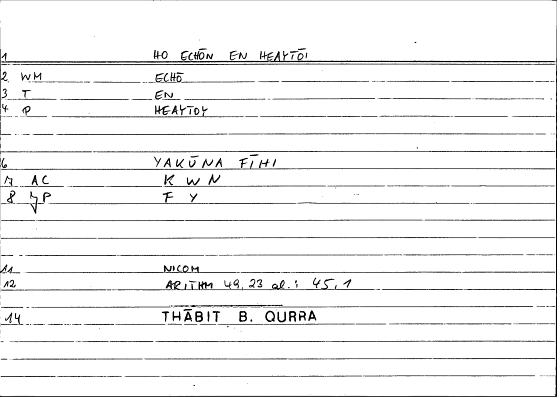 1 HO ECHŌN EN HEAYTŌI
2 WM ECHŌ
3 T EN
4 P HEAYTOY
6 YAKŪNA FĪHI
7 AC K W N
8 P F Y
11 NICOM
12 ARITHM 49,23 al.: 45,1
14 THĀBIT B. QURRA